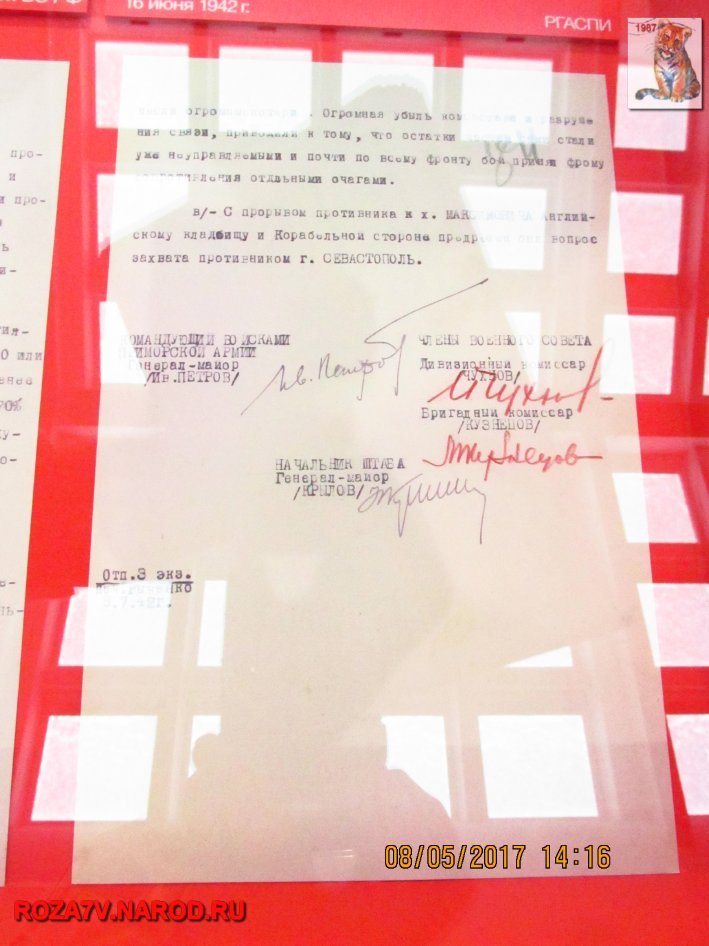 16 июня 1942 г.
РГАСПИ
1987
Огромная убыль
ния связи, приводили к тому, что остатки стали
уже неуправляемыми и почти по всему фронту бои принял фрому
отдльными очагами.
в/- С прорывом противника к х. Англий-
скому кладбищу и Корабельной стороне вопрос
захвата противником г. СЕВАСТОПОЛЬ.
КОМАНДУЮЩИЙ ВОЙСКАМИ
ПРИМОРСКОЙ АРМИИ
Генерал-майор
/Ив.ПЕТРОВ/
Ив. Петров
ЧЛЕНЫ ВОЕННОГО СОВЕТА
Дивизионный комиссар
/ЧУХНОВ/
Бригадный комиссар
/КУЗНЕЦОВ/
НАЧАЛЬНИК ШТАБА
Генерал-майор
/КРЫЛОВ/
Отп.3 экз.
5.7.42г.
про-
и
и про-
ь
и-
ия-
0 или
нее
20%
у-
о-
в-
о
ль-
08/05/2017 14:16
ROZA7V.NAROD.RU